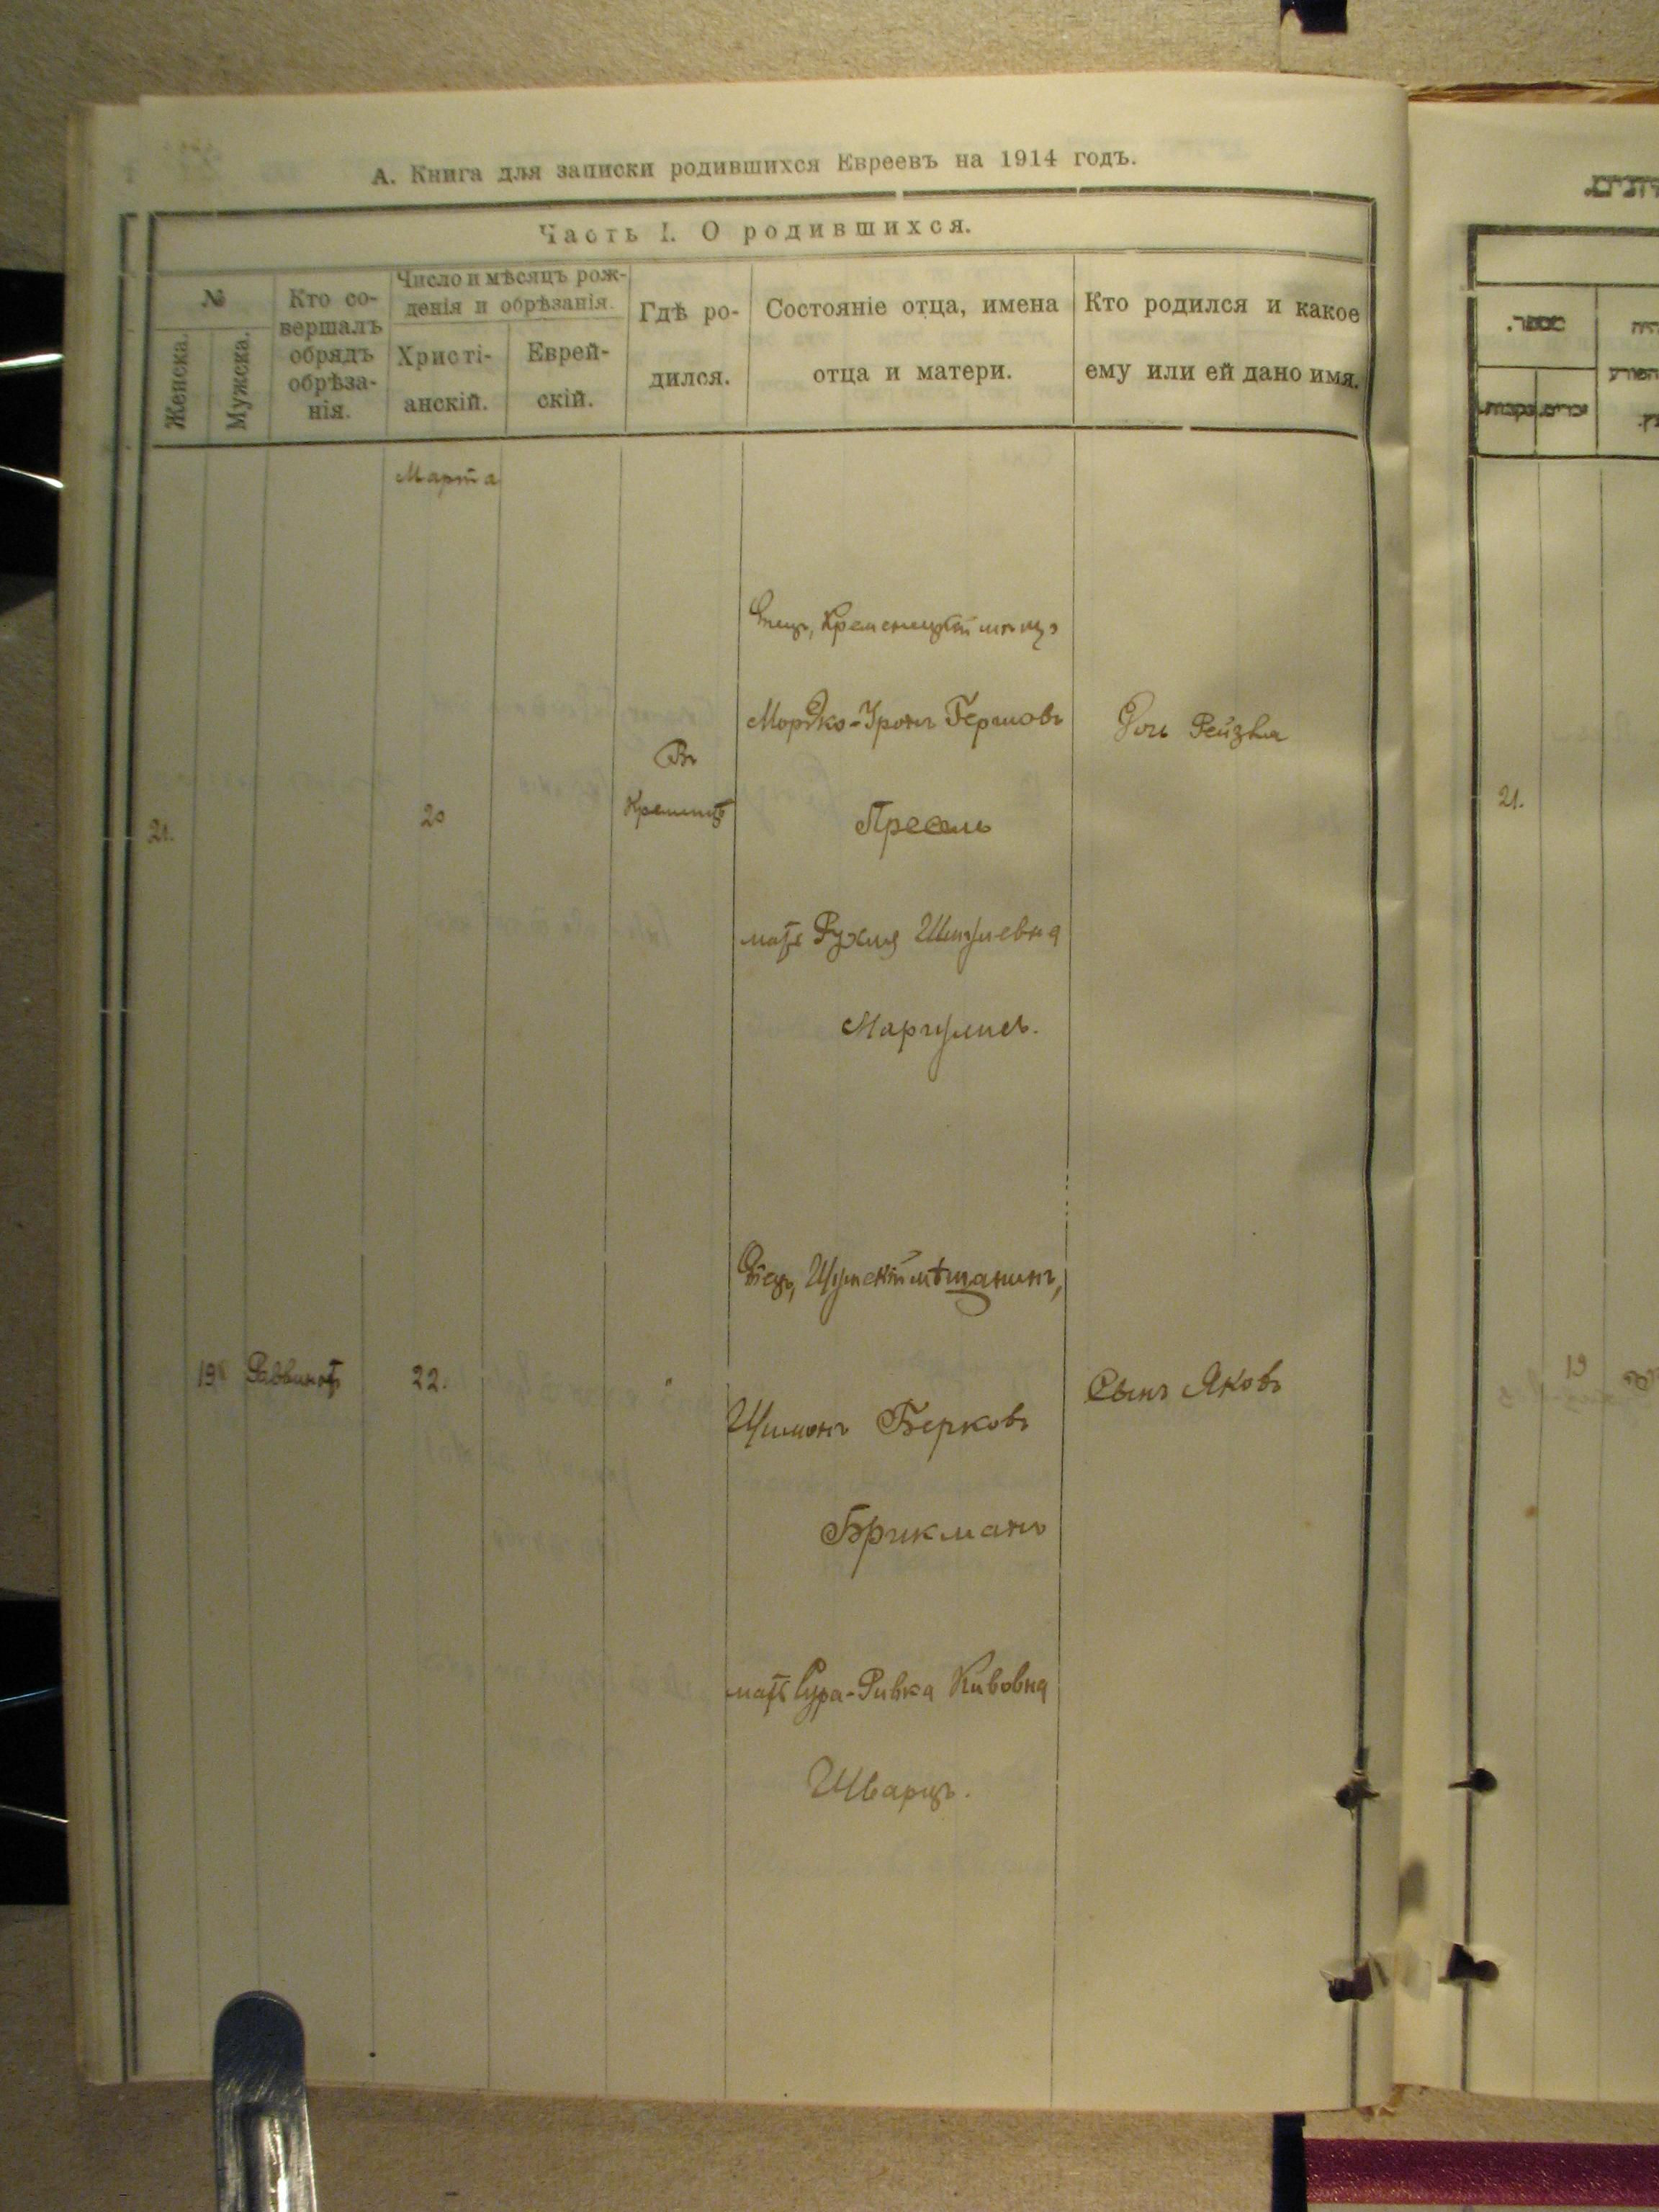 А. Книга для записки родившихся Евреевъ на 1914 годъ.
Часть I. О родившихся.
№
Женска.
Мужска.
Кто со-
вершалъ
обрядъ
обрѣза-
нія.
Число и мѣсяцъ рож-
денія и обрѣзанія.
Христі-
анскій.
Еврей-
скій.
Гдѣ ро-
дился.
Состояніе отца, имена
отца и матери.
Кто родился и какое
ему или ей дано имя.
Марта
21.
20
Въ
Кременцѣ
Отецъ, Кременецкій мѣщ.
Мордко-Уронъ Гершовъ
Прессль
мать Рухля Шмулевна
Маргулисъ.
Дочь Рейзля
19
Раввинъ
22.
"
Отецъ, Шумскій мѣщанинъ,
Шимонъ Берковъ
Брикманъ
мать Сура-Ривка Кивовна
Шварцъ.
Сынъ Яковъ
מספר.
נקבות.
זכרים.
21.
19